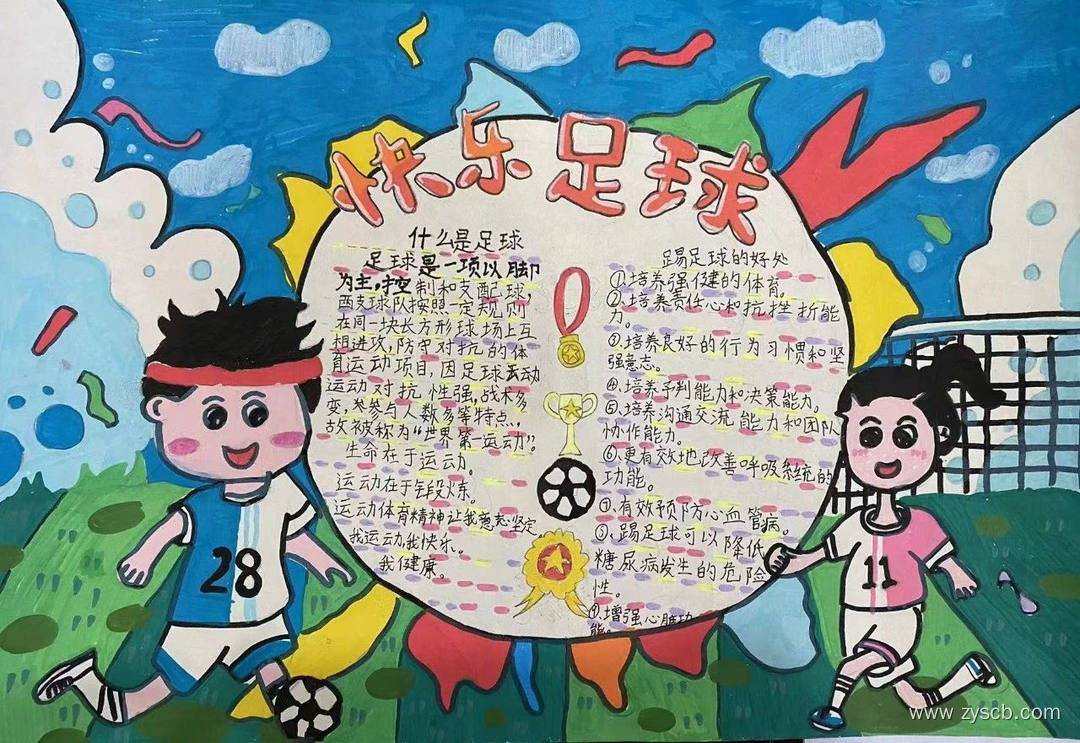 快乐足球
什么是足球
足球是一项以脚
为主,控制和支配球,
两支球队按照一定规则
在同一块长方形球场上互
相进攻,防守对抗的体
育运动项目,因足球运动
运动对抗性强,战术多
变,参与人数多等特点,
故被称为“世界第一运动”。
生命在于运动。
运动在于锻炼。
运动体育精神让我意志坚定
我运动,我快乐。
我健康。
踢足球的好处
①.培养强健的体育。
②.培养责任心和抗挫折能
力。
③.培养良好的行为习惯和坚
强意志。
④.培养予判能力和决策能力。
⑤.培养沟通交流能力和团队
协作能力。
⑥.更有效地改善呼吸系统的
功能。
⑦.有效预防心血管病。
⑧.踢足球可以降低
糖尿病发生的危险
性。
⑨.增强心脏功
能。
28
11
www.zyscb.com